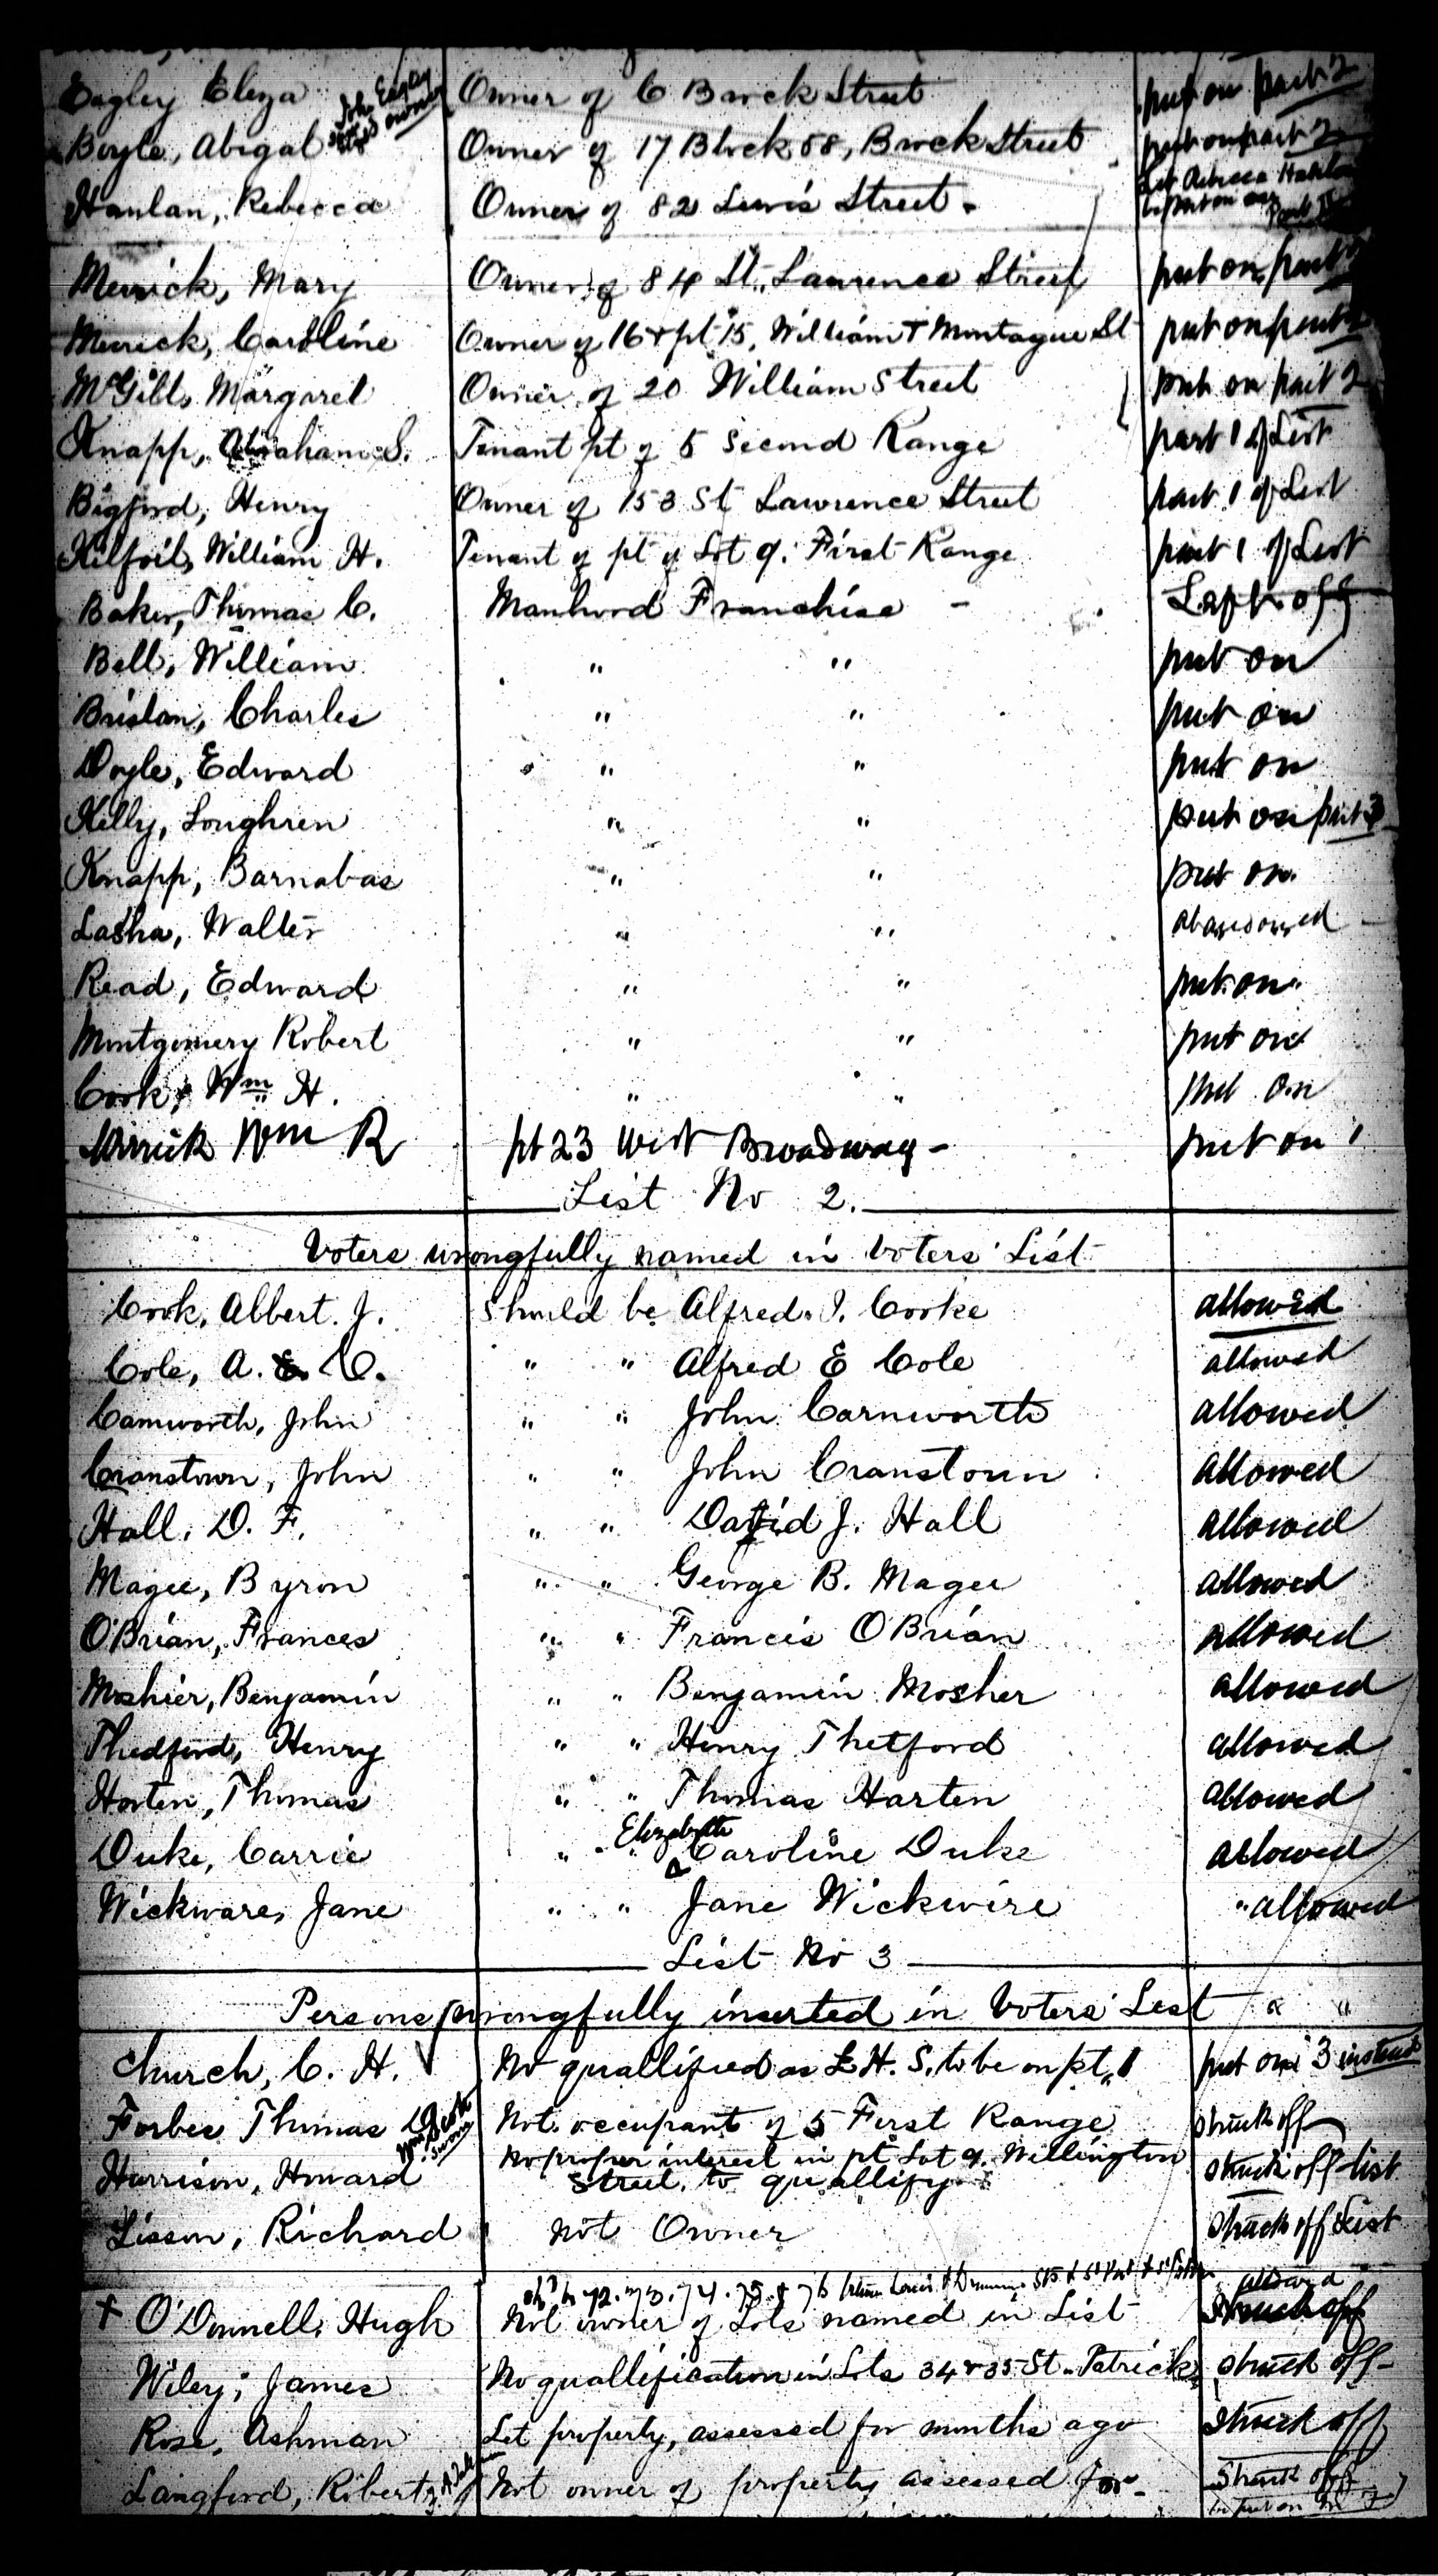 Eagley Eliza John Eagley owner Owner of 6 Brock Street put on part 2
Boyle, Abigal Owner of 17 Block 58, Brock Street put on part 2
Hanlan, Rebecca Owner of 82 Lewis Street. Let Rebecca be put on
Merrick, Mary Owner of 84 St. Lawrence Street put on part 2
Merrick, Caroline Owner of 16 & pt 15, William & Montague St put on part 2
McGill, Margaret Owner of 20 William Street put on part 2
Knapp, Abraham S. Tenant pt of 5 Second Range part 1 of List
Bigford, Henry Owner of 153 St Lawrence Street part 1 of List
Kilfoil, William H. Tenant of pt of Lot 9. First Range part 1 of List
Baker, Thomas C. Manhood Franchise - Left off
Bell, William " " put on
Brislan, Charles " " put on
Doyle, Edward " " put on
Kelly, Loughren " " put on part 3
Knapp, Barnabas " " put on.
Lasha, Walter " " abandoned
Read, Edward " " put on
Montgomery Robert " " put on
Cook, Wm H. " " put on
Merrick Wm R pt 23 West Broadway - put on 1
List No 2.
Voters wrongfully named in Voters' List
Cook, Albert. J. Should be Alfred. J. Cooke allowed
Cole, A. C. " " Alfred E Cole allowed
Camworth, John " " John Carnworth allowed
Cranstown, John " " John Cranstoun allowed
Hall. D. F. " " David J. Hall allowed
Magee, Byron " " George B. Magee allowed
O'Brian, Frances " " Francis O'Brian allowed
Moshier, Benjamin " " Benjamin Mosher allowed
Thedford, Henry " " Henry Thetford allowed
Horten, Thomas " " Thomas Harten allowed
Elizabeth
Duke, Carrie " " Caroline Duke allowed
Wickware, Jane " " Jane Wickwire " allowed
List No 3
Persons wrongfully inserted in Voters' List " "
Church, C. H. Not quallified as L. H. S. to be on pt. 1 put on 3 instead
Forbes Thomas D. Not occupant of 5 First Range struck off
Harrison, Howard No proper interest in pt Lot 9. Wellington
Street, to quallify struck off list
Lisson, Richard Not Owner struck off List
72. 73. 74. 75. & 76 allowed
+ O'Donnell, Hugh Not owner of Lots named in List struck off
Wiley, James No quallification in Lots 34 & 35 St. Patrick struck off -
Rose, Ashman Let property, assessed for months ago struck off
Langford, Robert Not owner of property assessed for - struck off
be put on